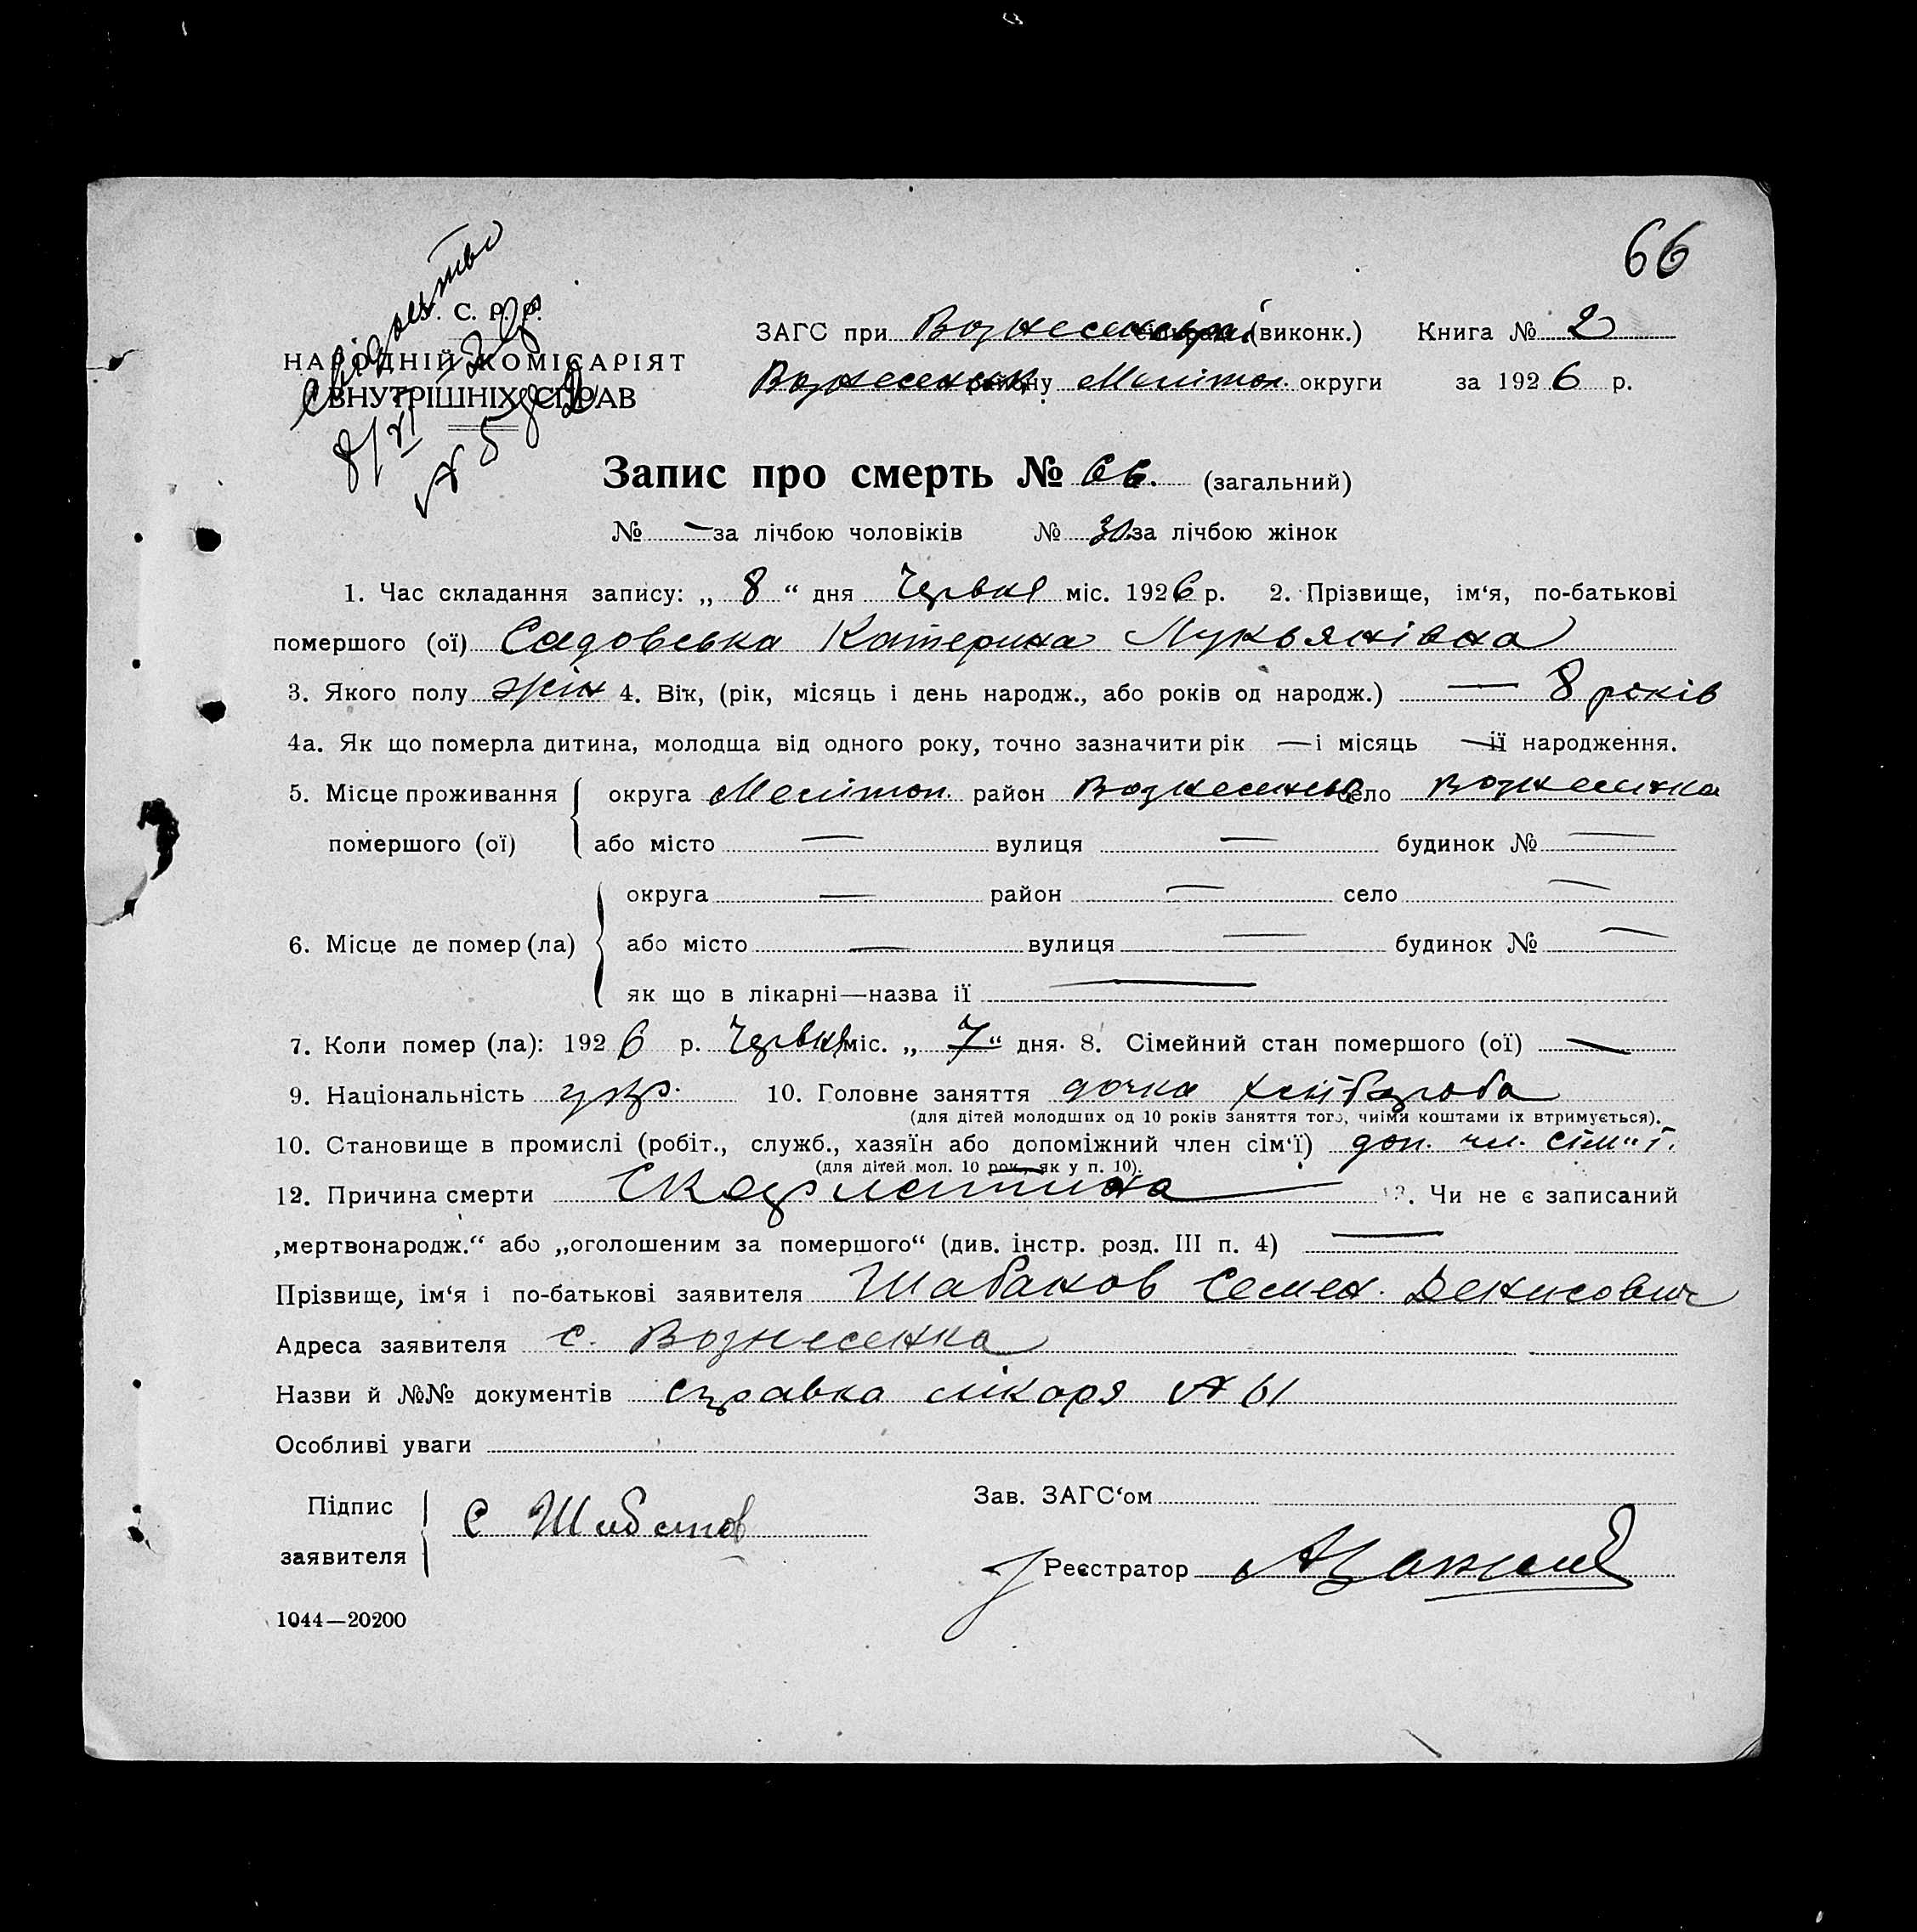 66
Свідоцтво
С. Р. Р.
НАРОДНІЙ КОМІСАРІЯТ
ВНУТРІШНІХ СПРАВ
8/VI
№ 5
ЗАГС при Вознесенськ. (виконк.) Книга № 2
Вознесенськ. району Мелітоп. округи за 1926 р.
Запис про смерть № 66. (загальний)
№ — за лічбою чоловіків № 30 за лічбою жінок
1. Час складання запису: „ 8 “ дня Червня міс. 1926 р. 2. Прізвище, ім‘я, по-батькові
помершого (ої) Садовська Катерина Лукьянівна
3. Якого полу жін 4. Вік, (рік, місяць і день народж., або років од народж.) — 8 років
4а. Як що померла дитина, молодща від одного року, точно зазначити рік — і місяць — її народження.
5. Місце проживання округа Мелітоп. район Вознесенськ село Вознесенка
помершого (ої) або місто — вулиця — будинок № —
округа — район — село —
6. Місце де помер (ла) або місто — вулиця — будинок № —
як що в лікарні—назва ії —
7. Коли помер (ла): 1926 р. Червня міс. „ 7 “ дня. 8. Сімейний стан помершого (ої) —
9. Національність укр. 10. Головне заняття дочка хлібороба
(для дітей молодших од 10 років заняття того, чиїми коштами їх втримується).
10. Становище в промислі (робіт., служб., хазяїн або допоміжний член сім‘ї) доп. чл. сім“ї.
(для дітей мол. 10 рок., як у п. 10).
12. Причина смерти Скарлатина — 13. Чи не є записаний
„мертвонародж.“ або „оголошеним за помершого“ (див. інстр. розд. III п. 4) —
Прізвище, ім‘я і по-батькові заявителя Шабанов Семен. Денисович
Адреса заявителя с. Вознесенка
Назви й №№ документів справка лікаря № 61
Особливі уваги
Підпис заявителя С Шабанов
Зав. ЗАГС‘ом
Реєстратор
1044—20200